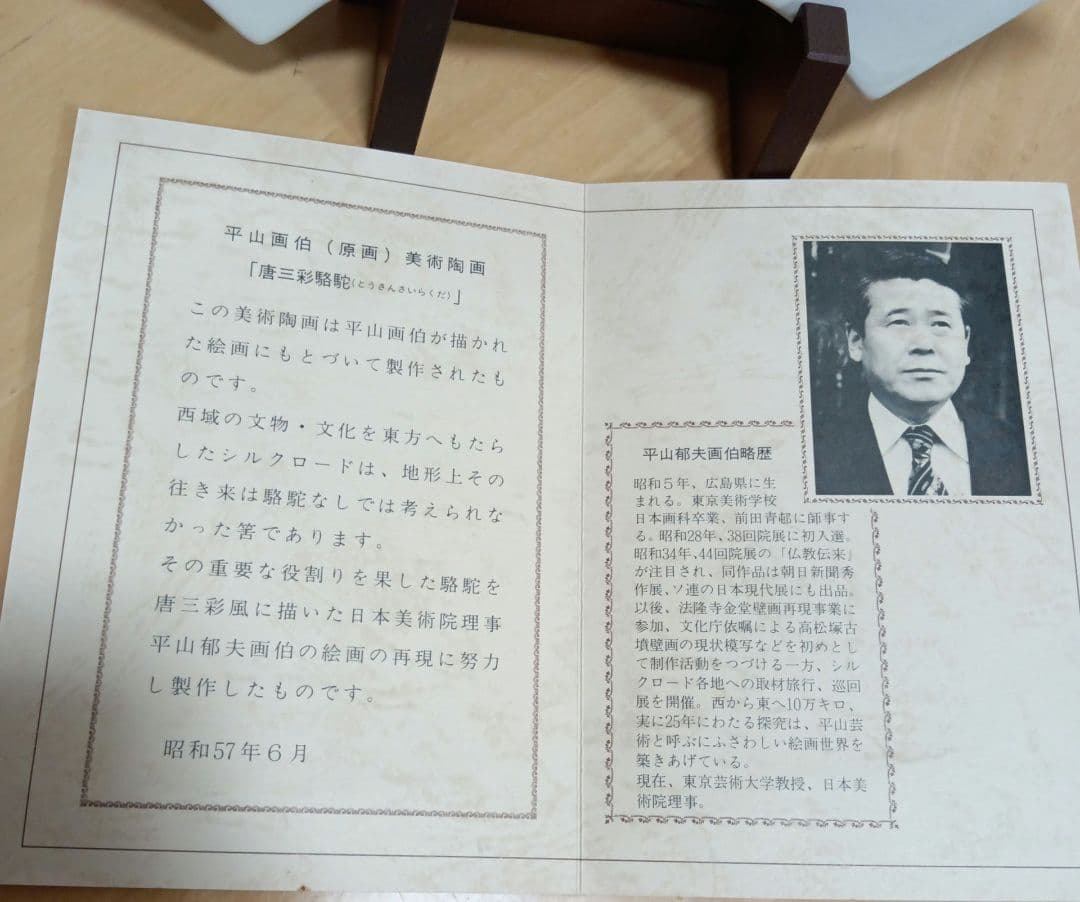 平山画伯（原画）美術陶画
「唐三彩駱駝(とうさんさいらくだ)」
この美術陶画は平山画伯が描かれ
た絵画にもとづいて製作されたも
のです。
西域の文物・文化を東方へもたら
したシルクロードは、地形上その
往き来は駱駝なしでは考えられな
かった筈であります。
その重要な役割りを果した駱駝を
唐三彩風に描いた日本美術院理事
平山郁夫画伯の絵画の再現に努力
し製作したものです。
昭和57年6月
平山郁夫画伯略歴
昭和5年、広島県に生
まれる。東京美術学校
日本画科卒業、前田青邨に師事す
る。昭和28年、38回院展に初入選。
昭和34年、44回院展の「仏教伝来」
が注目され、同作品は朝日新聞秀
作展、ソ連の日本現代展にも出品。
以後、法隆寺金堂壁画再現事業に
参加、文化庁依嘱による高松塚古
墳壁画の現状模写などを初めとし
て制作活動をつづける一方、シル
クロード各地への取材旅行、巡回
展を開催。西から東へ10万キロ、
実に25年にわたる探究は、平山芸
術と呼ぶにふさわしい絵画世界を
築きあげている。
現在、東京芸術大学教授、日本美
術院理事。